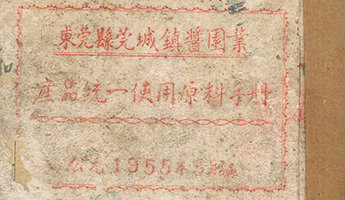 東莞縣莞城鎮醬園業
產品統一使用原料手冊
公元1955年5月編